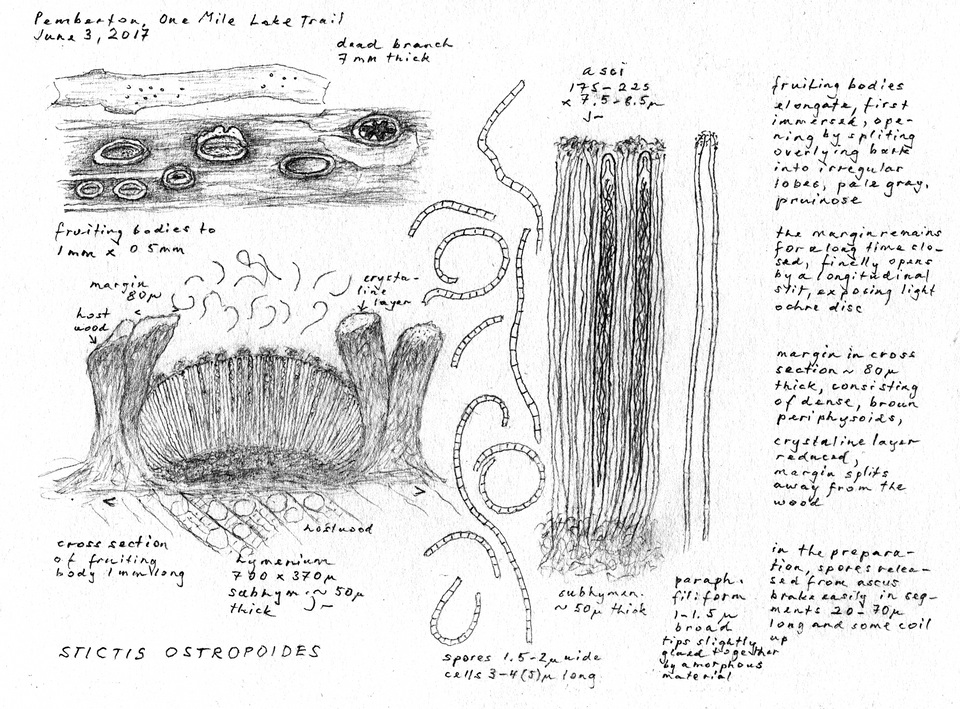 Pemberton, One Mile Lake Trail
June 3, 2017
dead branch
7 mm thick
fruiting bodies to
1mm x 0.5mm
margin
80µ
host
wood
crysta-
line
layer
hostwood
cross section
of fruiting
body 1mm long
hymenium
700 x 370µ
subhym. ~ 50µ
thick
STICTIS OSTROPOIDES
asci
175-225
x 7.5-8.5µ
spores 1.5-2µ wide
cells 3-4(5)µ long
subhymen.
~ 50µ thick
paraph.
filiform
1-1.5µ
broad
tips slightly
glued together
by amorphous
material
fruiting bodies
elongate, first
immersed, ope-
ning by spliting
overlying bark
into irregular
lobes, pale gray,
pruinose
the margin remains
for a long time clo-
sed, finelly opens
by a longitudinal
slit, exposing light
ochre disc
margin in cross
section ~ 80µ
thick, consisting
of dense, broun
periphysoids,
crystaline layer
reduced,
margin splits
away from the
wood
in the prepara-
tion, spores relea-
sed from ascus
brake easily in seg-
ments 20-70µ
long and some coil
up